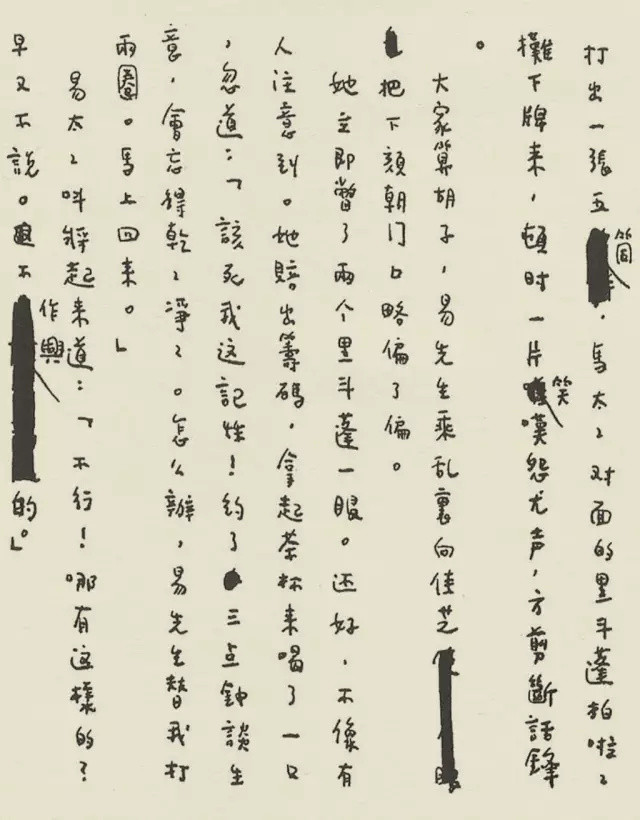 打出一張五筒，馬太々对面的黑斗蓬拍啦々
攤下牌来，頓时一片笑嘆怨尤声，方剪斷話鋒
。
大家算胡子，易先生乘乱裏向佳芝
把下頦朝门口略偏了偏。
她立即瞥了兩个黑斗蓬一眼。还好，不像有
人注意到。她賠出籌碼，拿起茶杯来喝了一口
，忽道：「該死我这記性！约了三点鈡談生
意，會忘得乾々淨々。怎么辦，易先生替我打
兩圈。馬上回来。」
易太々叫将起来道：「不行！哪有这樣的？
早又不說。不作興的。」